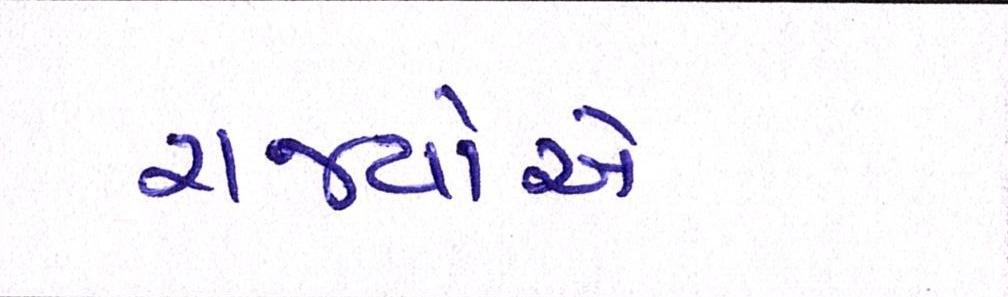 રાજ્યોએ